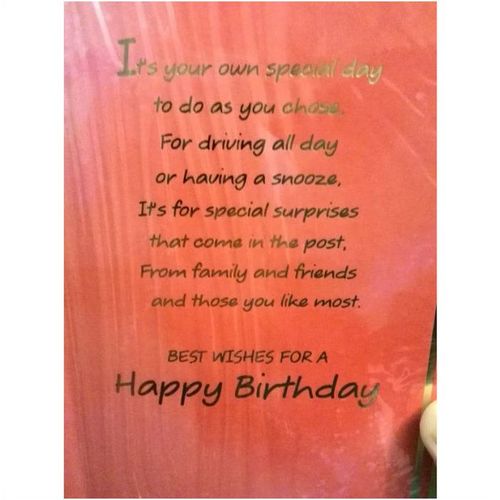 It's your own special day
to do as you chose.
For driving all day
or having a snooze,
It's for special surprises
that come in the post,
From family and friends
and those you like most.
BEST WISHES FOR A
Happy Birthday